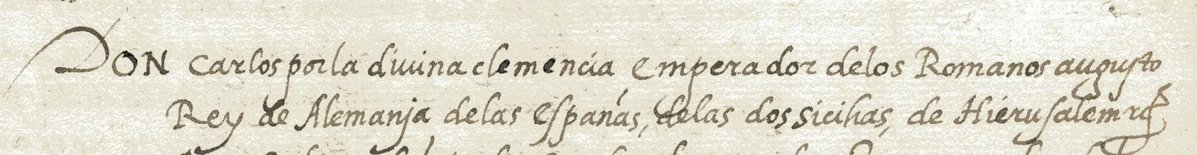 DON Carlos por la diuina clemencia Emperador delos Romanos augusto
Rey de Alemanja delas Españas, delas dos sicilias, de Hierusalem